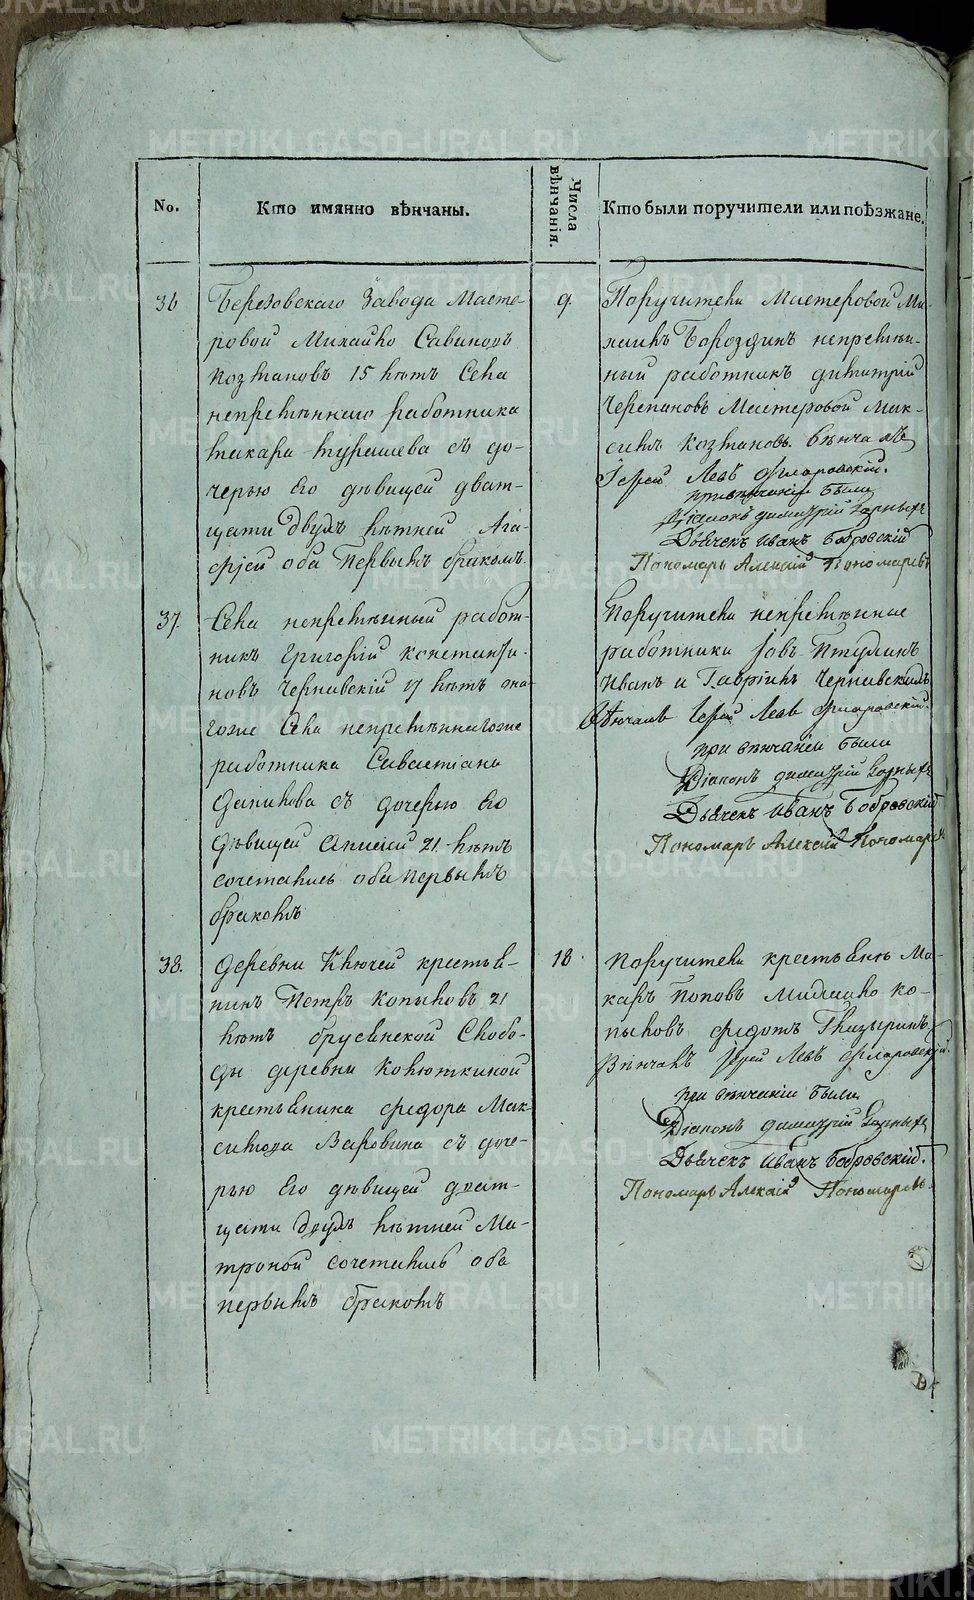 No.
Кто имянно вѣнчаны.
Числа вѣнчанія.
Кто были поручители или поѣзжане.
36
Березовскаго Завода Масте-
ровой Михайло Савиновъ
Козмановъ 15 лѣтъ Села
непремѣннаго работника
Макара Мурашева съ до-
черью Его дѣвицей дват-
цати двухъ лѣтней Ага-
фіей оба Первымъ бракомъ.
9.
Поручители Мастеровой Ми-
хаилъ Бороздинъ непремѣн-
ный работникъ Димитрій
Черепановъ Мастеровой Мак-
симъ Козмановъ. Вѣнчалъ
Іерей Левъ Флоровскій.
при вѣнчаніи были
Діаконъ Димитрій
Дьячекъ Иванъ Бобровскій
Пономарь Алексій Пономаревъ
37.
Села непремѣнный работ-
никъ Григорій Константи-
новъ Чернавскій 17 лѣтъ она-
гоже Села непремѣннагоже
работника Савастіана
Данилова съ дочерью Его
дѣвицей Анисіей 21 лѣтъ
сочетались оба первымъ
бракомъ
Поручители непремѣнные
работники Іовъ Птухинъ
Иванъ и Гавріилъ Чернавскія
Вѣнчалъ Іерей Левъ Флоровскій.
при вѣнчаніи были
Діаконъ Димитрій
Дьячекъ Иванъ Бобровскій
Пономарь Алексій Пономаревъ
38.
Деревни Ключей крестья-
нинъ Петръ Копыловъ 21
лѣтъ Брусянской Слобо-
ды деревни Колюткиной
крестьянина Федора Мак-
симова Варовина съ доче-
рью Его дѣвицей дват-
цати двухъ лѣтней Ма-
троной сочетались оба
первымъ бракомъ
18.
Поручители крестьяне Ма-
каръ Поповъ Михайло Ко-
пыловъ Федотъ
Вѣнчалъ Іерей Левъ Флоровскій.
при вѣнчаніи были
Діаконъ Димитрій
Дьячекъ Иванъ Бобровскій.
Пономарь Алексій Пономаревъ.
METRIKI.GASO-URAL.RU